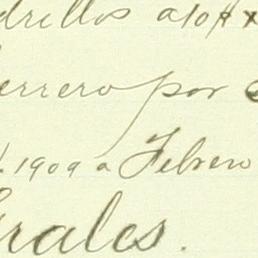 drillos a 10 $ x
errero por
1909 a Febrero
rales.